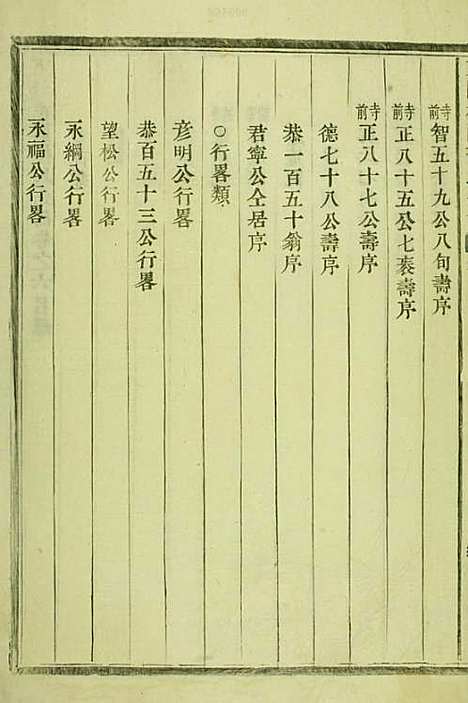 寺前智五十九公八旬壽序
寺前正八十五公七袠壽序
寺前正八十七公壽序
德七十八公壽序
恭一百五十翁序
君寧公仝居序
○行畧類
彦明公行畧
恭百五十三公行畧
望松公行畧
永綱公行畧
永福公行畧